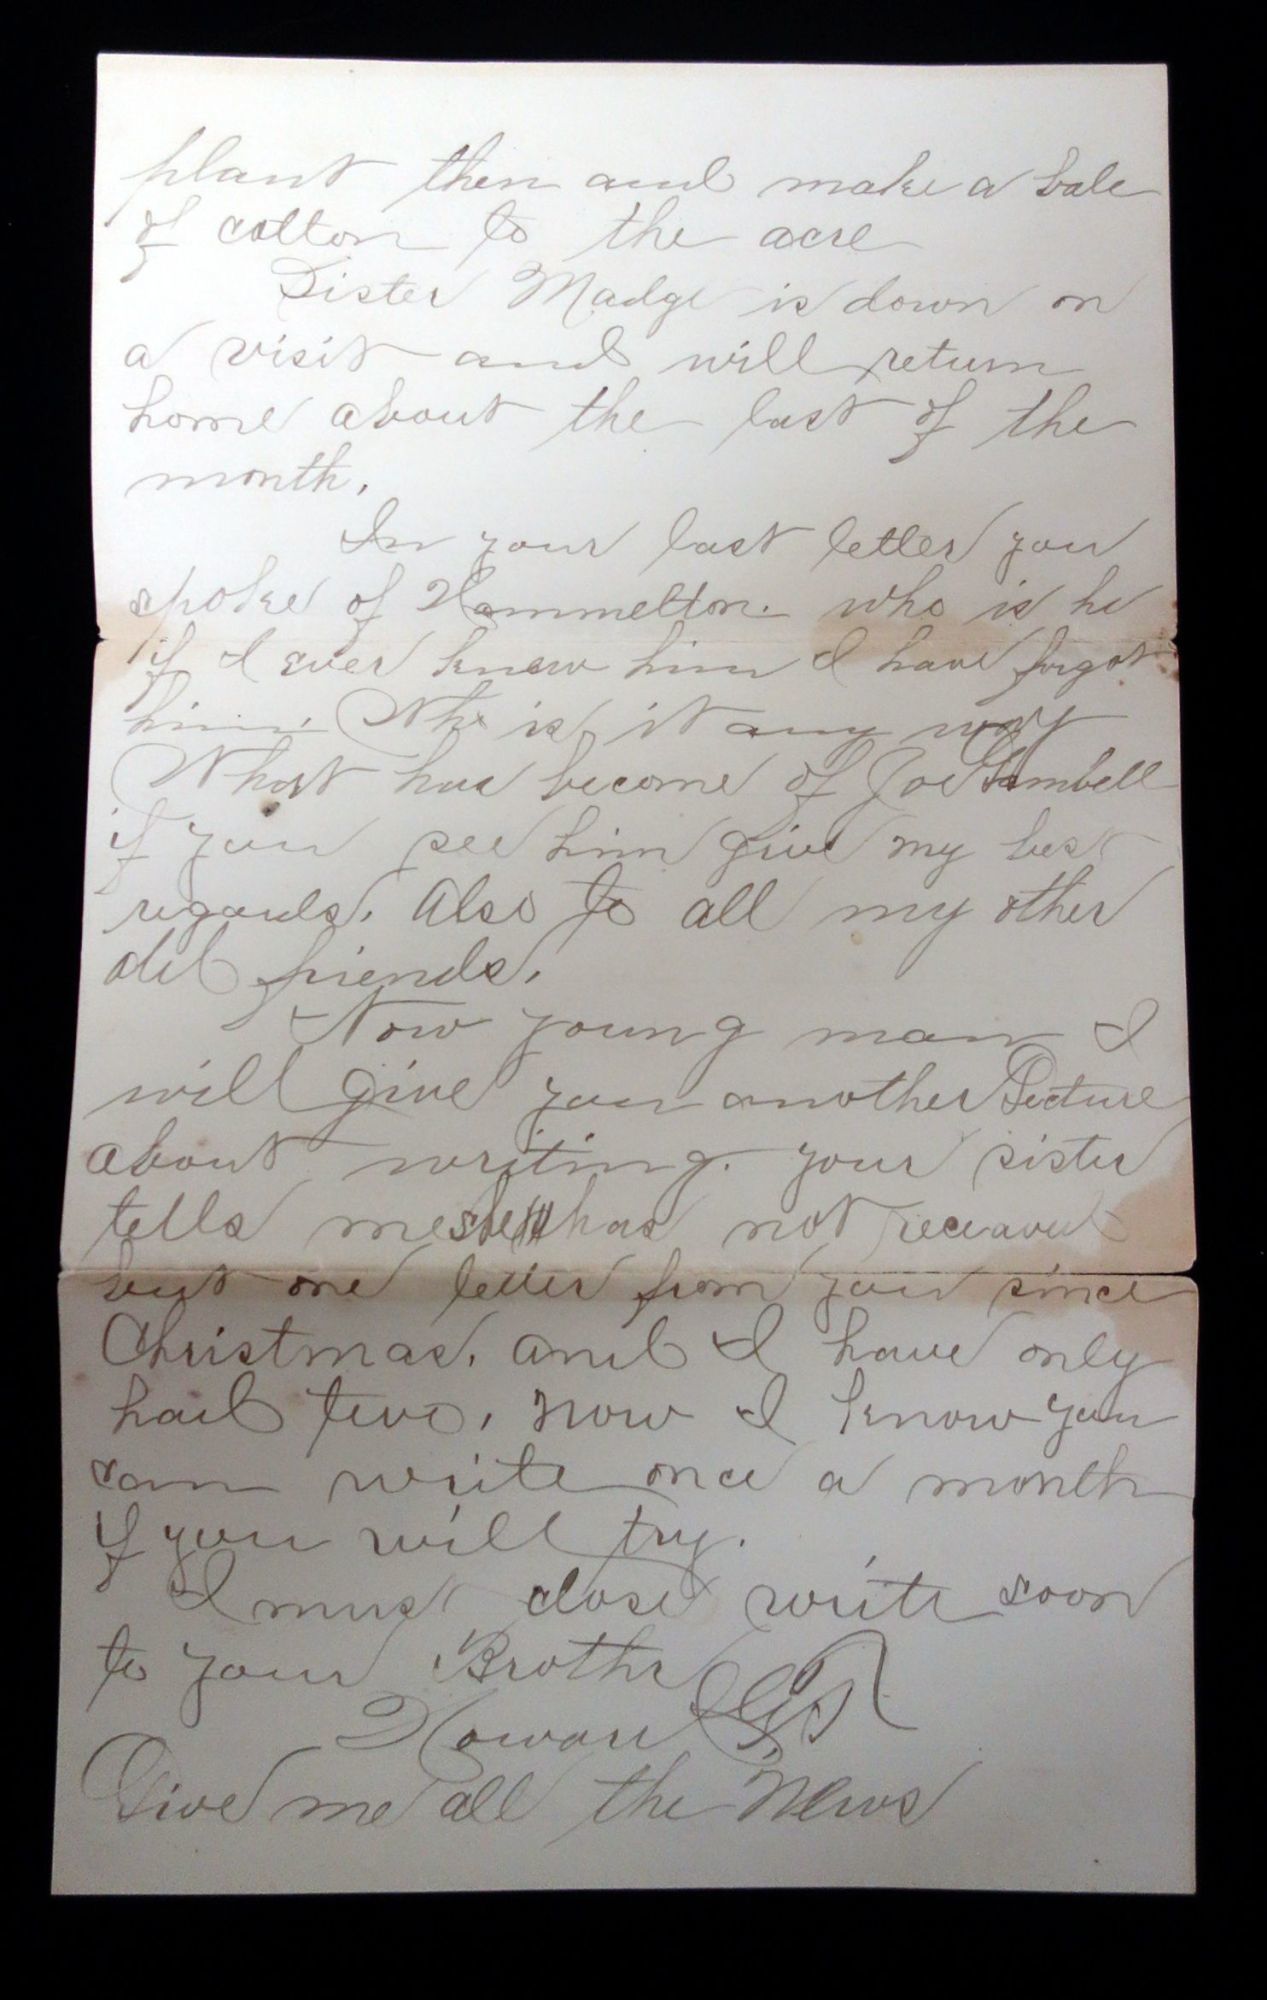 plant then and make a bale
of cotton to the acre
Sister Madge is down on
a visit and will return
home about the last of the
month.
In your last letter you
spoke of Hammelton. who is he
if I ever knew him I have forgot
him. Who is it any way
What has become of Joe Gambell
if you see him give my best
regards. Also to all my other
old friends.
Now young man I
will give you another Lecture
about writing. your sister
tells me she has not receaved
but one letter from you since
Christmas. and I have only
had two. Now I know you
can write once a month
if you will try.
I must close write soon
to your Brother
Howard
Give me all the News